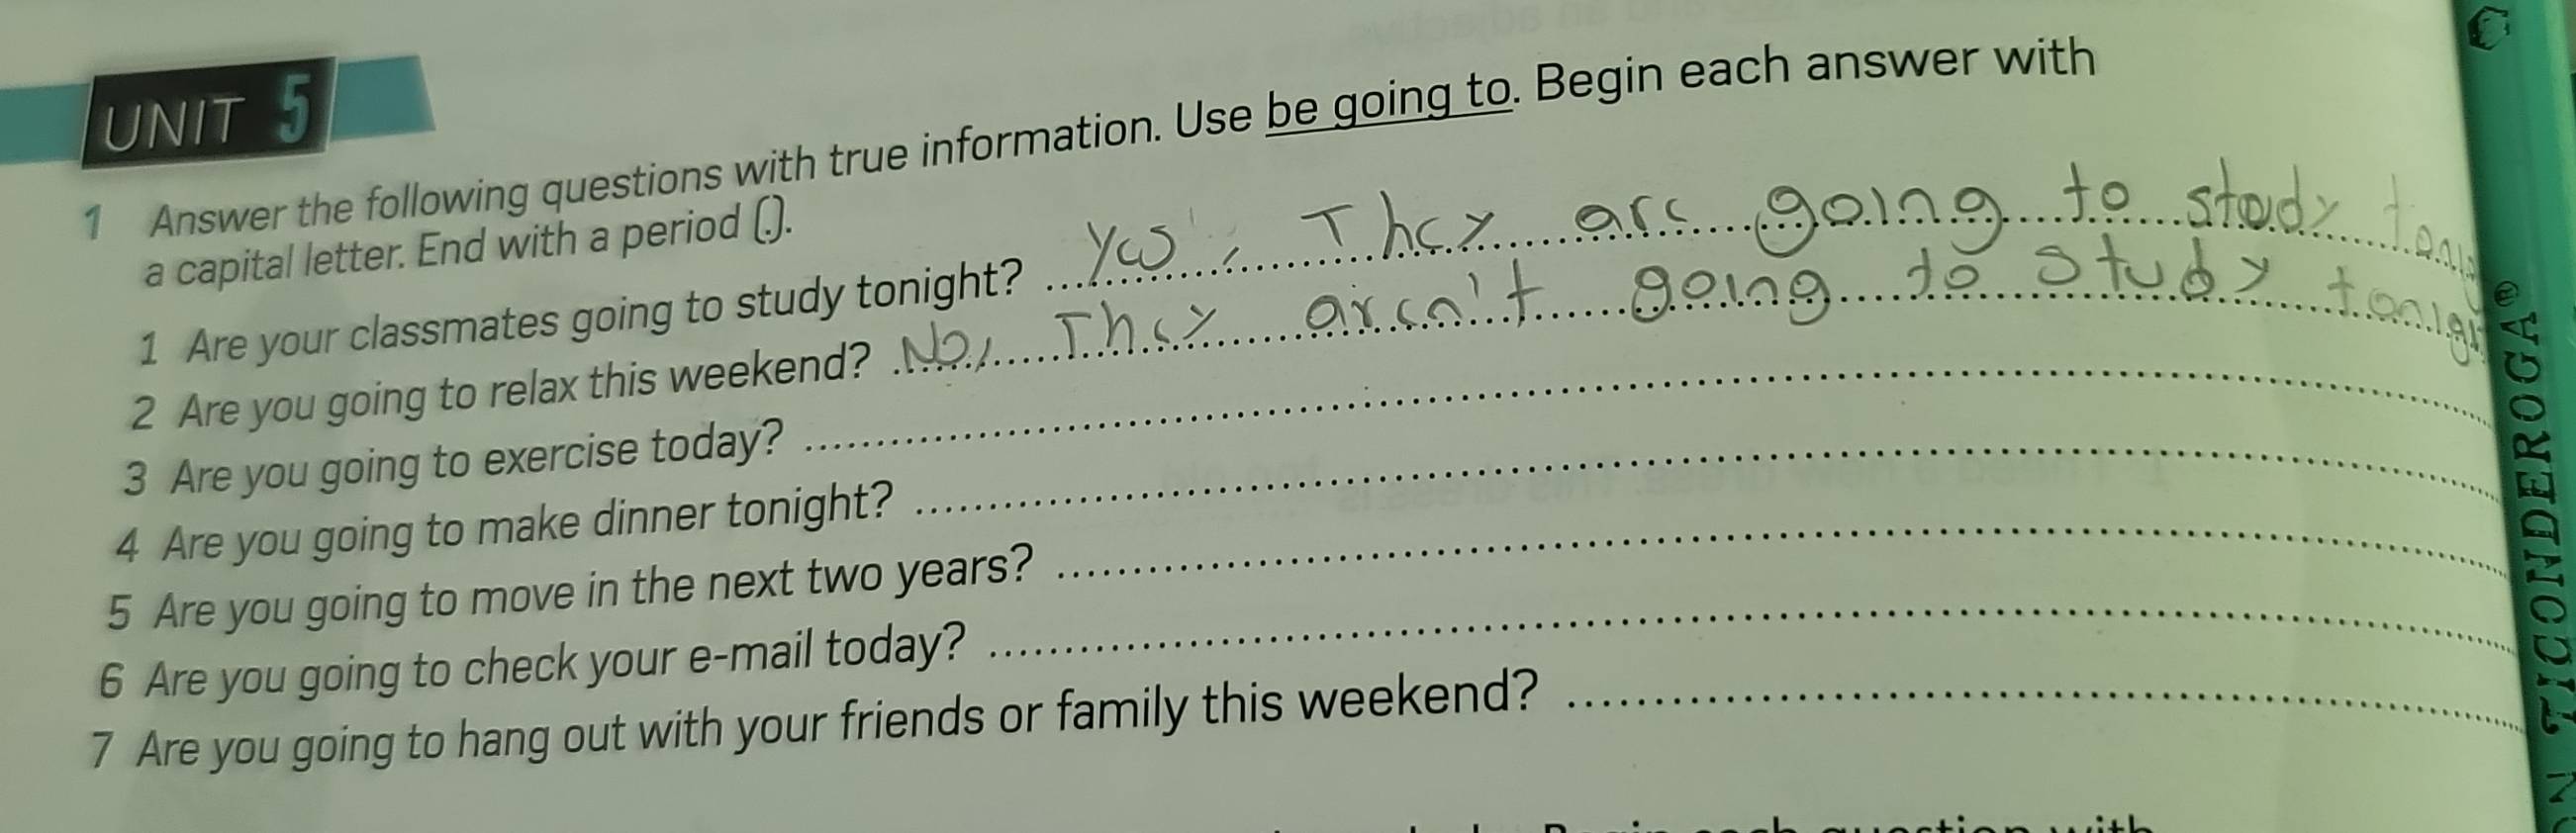 UNIT 5
1 Answer the following questions with true information. Use be going to. Begin each answer with
a capital letter. End with a period (.).
1 Are your classmates going to study tonight? Yes, They are going to study
2 Are you going to relax this weekend? No, They aren't going to study tonigh
3 Are you going to exercise today?
4 Are you going to make dinner tonight?
5 Are you going to move in the next two years?
6 Are you going to check your e-mail today?
7 Are you going to hang out with your friends or family this weekend?
TICONDEROGA®